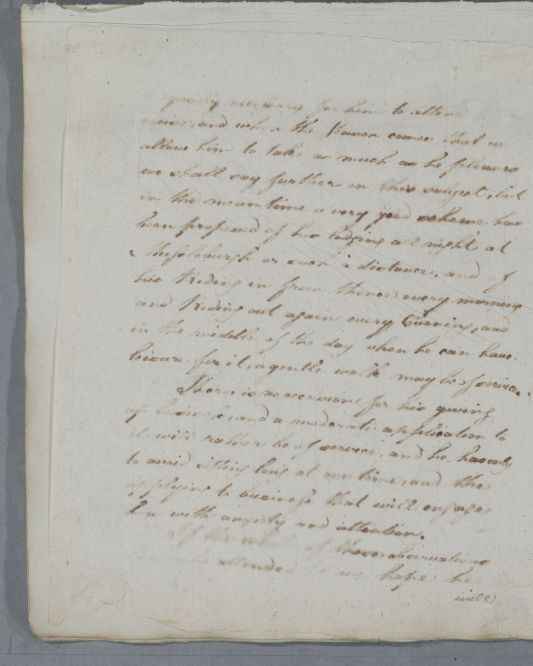 necessary for him to attend
and when the Season comes that we
allow him to take as much as he pleases
we shall say further on this subject, but
in the mean time a very good scheme has
been proposed of his lodging all night at
Musleburgh or such a distance, and of
his Riding in from thence every morning
and Riding out again every Evening, and
in the middle of the day when he can have
leisure for it, a gentle walk may be of service.
There is no occasion for his giving
up business, and a moderate application to
it will rather be of service, and he has only
to avoid sitting long at one time, and the
applying to business that will engage
him with anxiety and attention.
If the whole of these observations
attended to we hope he
will